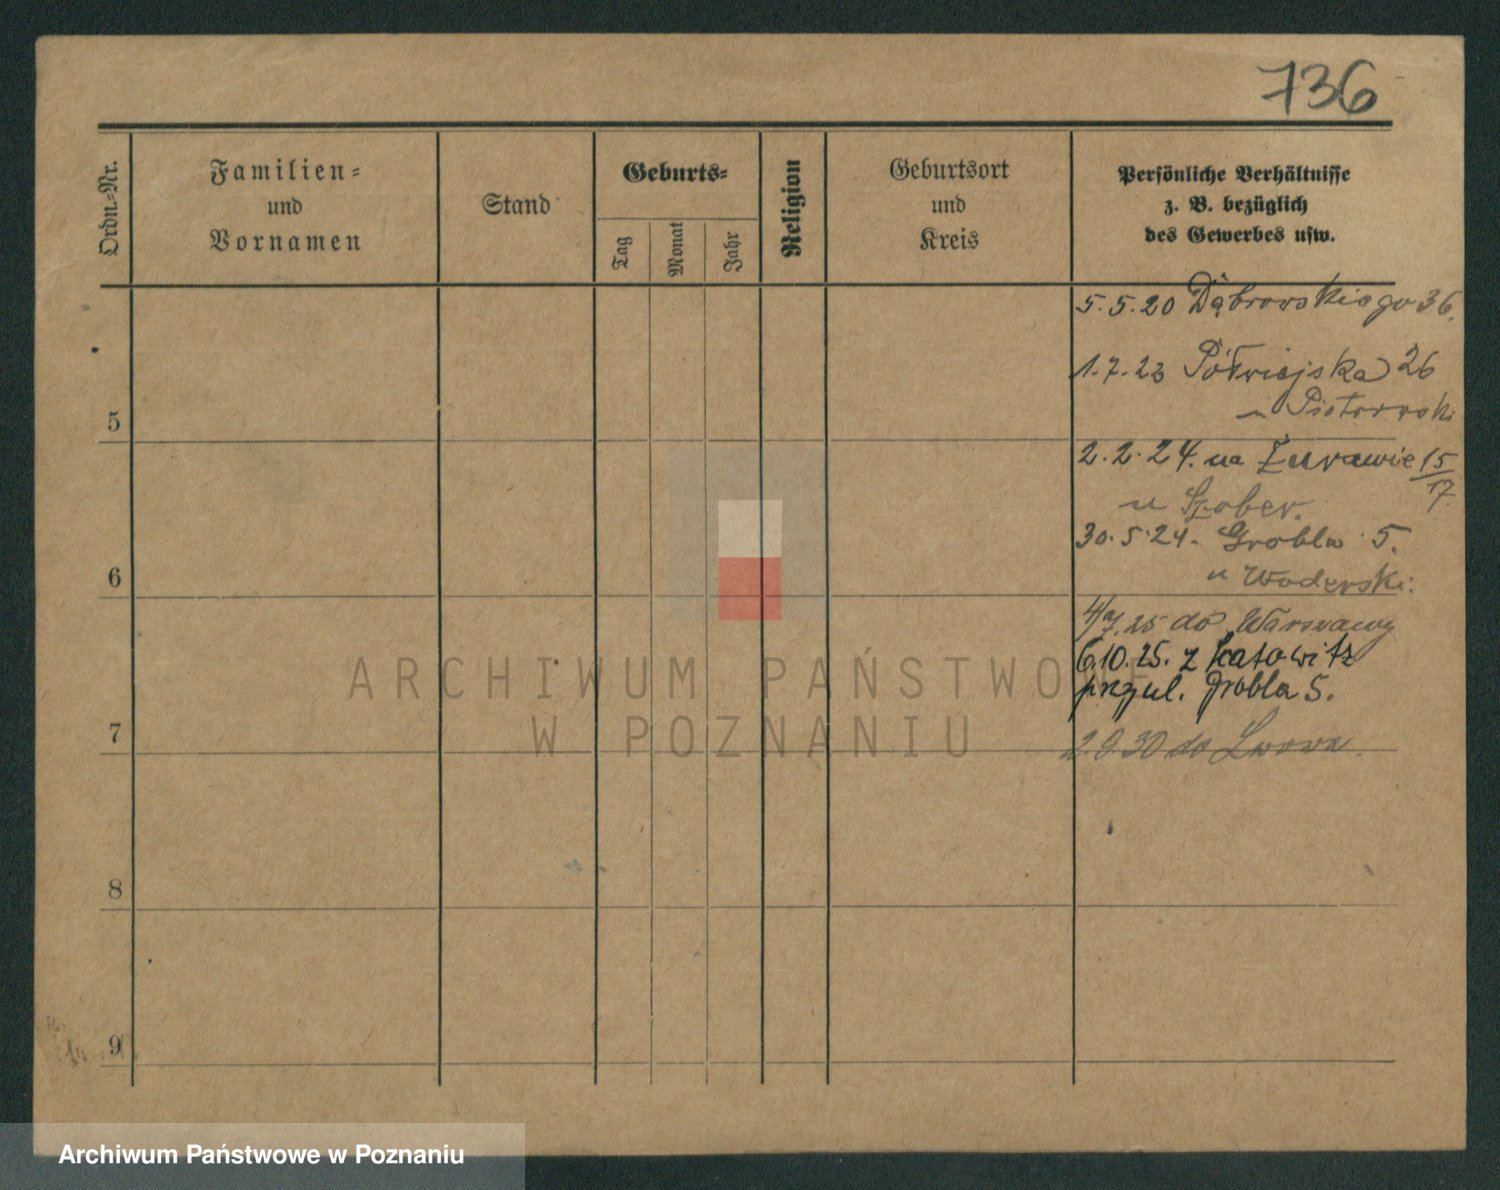 736
Ordn.-Nr.
Familien-
und
Vornamen
Stand
Geburts-
Tag
Monat
Jahr
Religion
Geburtsort
und
Kreis
Persönliche Verhältnisse
z. B. bezüglich
des Gewerbes usw.
5.5.20 Dąbrowskiego 36.
1.7.23 Półwiejska 26
u Piotrowski
5
2.2.24. na Żurawie 15/17.
u Szober.
30.5.24. Grobla 5.
u Woderski.
6
4/7.25 do Warszawy
6.10.25. z Katowitz
przy ul. Grobla 5.
7
2.9.30 do Lwowa.
8
9
ARCHIWUM PAŃSTWOWE
W POZNANIU
Archiwum Państwowe w Poznaniu